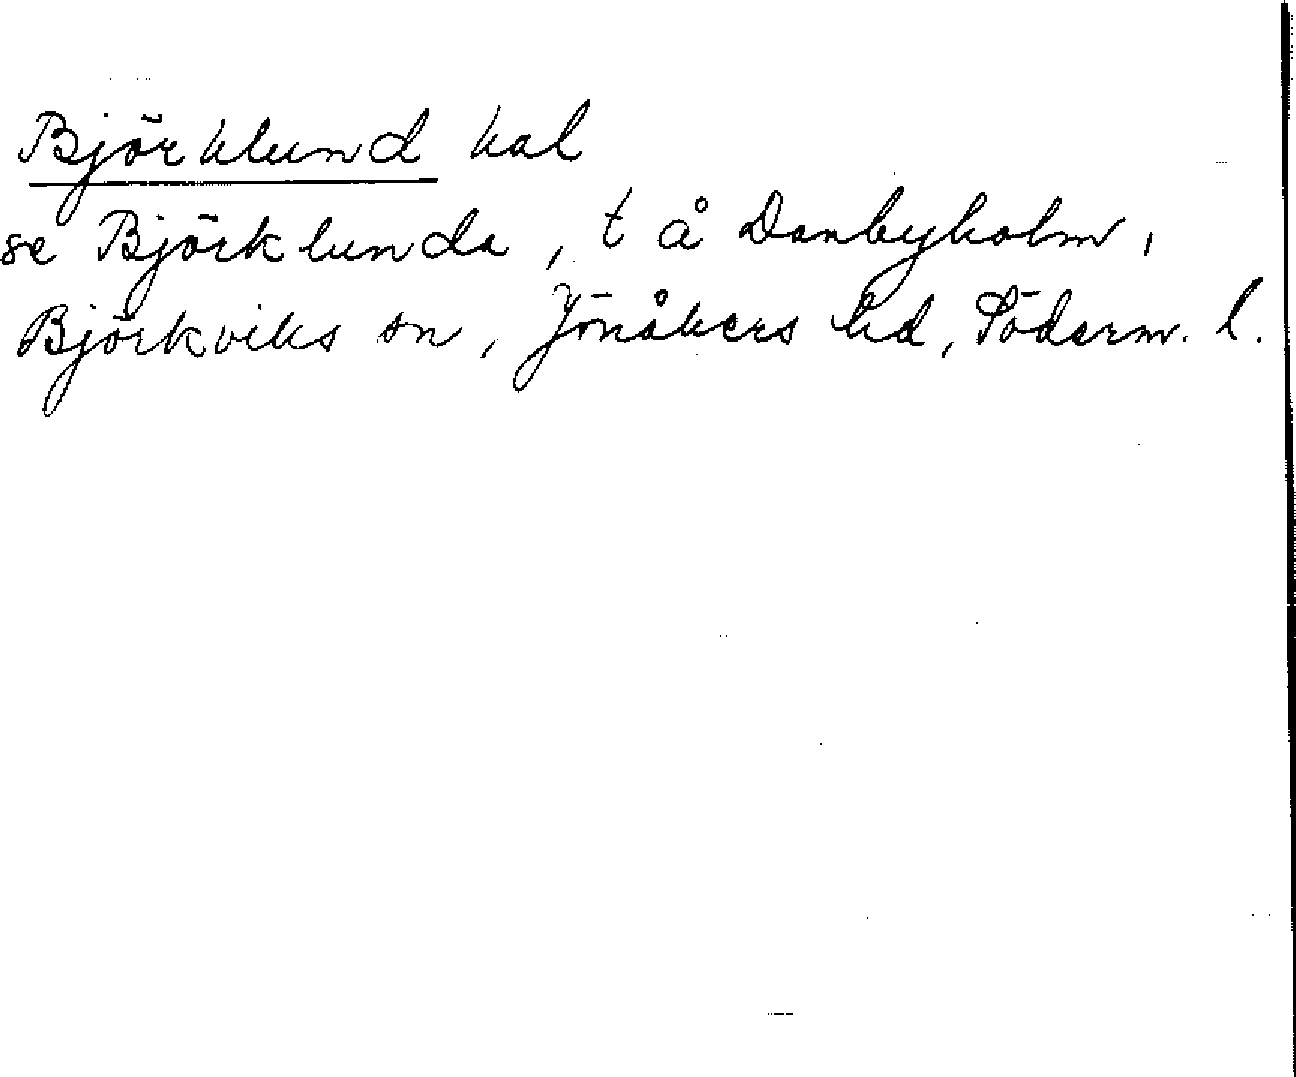 Björklund kal
se Björklunda, t å Danbyholm,
Björkviks sn, Jönåkers hd, Söderm. l.